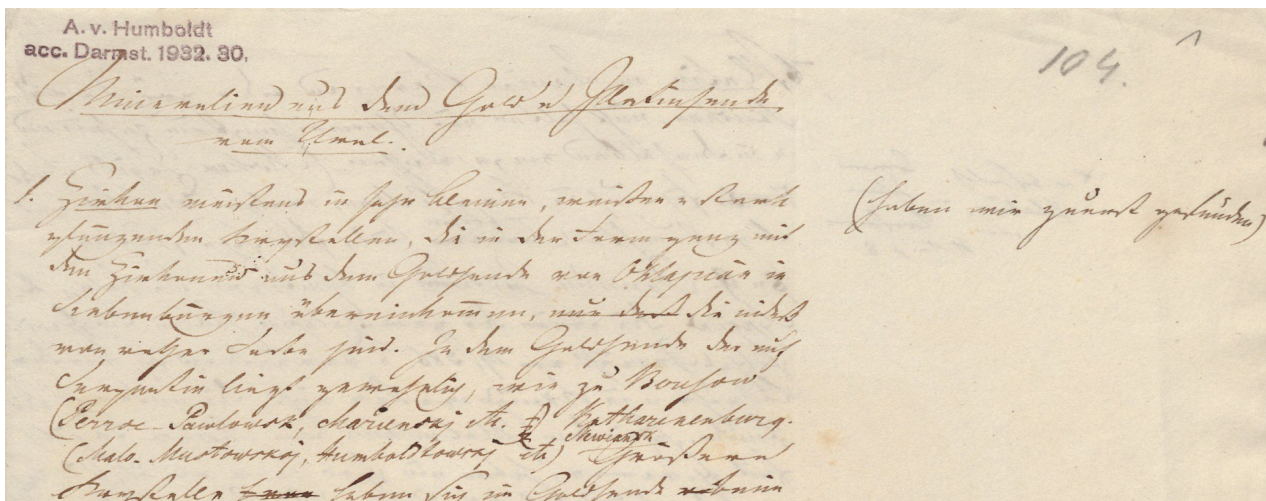 A. v. Humboldt
acc. Darmst. 1932. 30.
104.
Mineralien aus dem Gold u Platinsande
vom Ural.
1. Zirkon meistens in sehr kleinen, weissen u stark
glänzenden Krystallen, die in der Form ganz mit
den Zirkonen aus dem Goldsande von Ohlapian in
Siebenbürgen übereinkommen, nur dass die indess
von rother Farbe sind. In dem Goldsande der auf
Serpentin liegt gewöhnlich, wie zu
(Perroe-Pawlowsk, Mariinskoj Katharinenburg.
(Malo-Mustowskoj, Humboldtowskoj Newiansk Grössere
Krystalle haben sich im Goldsande beim
(haben wir zuerst gefunden)